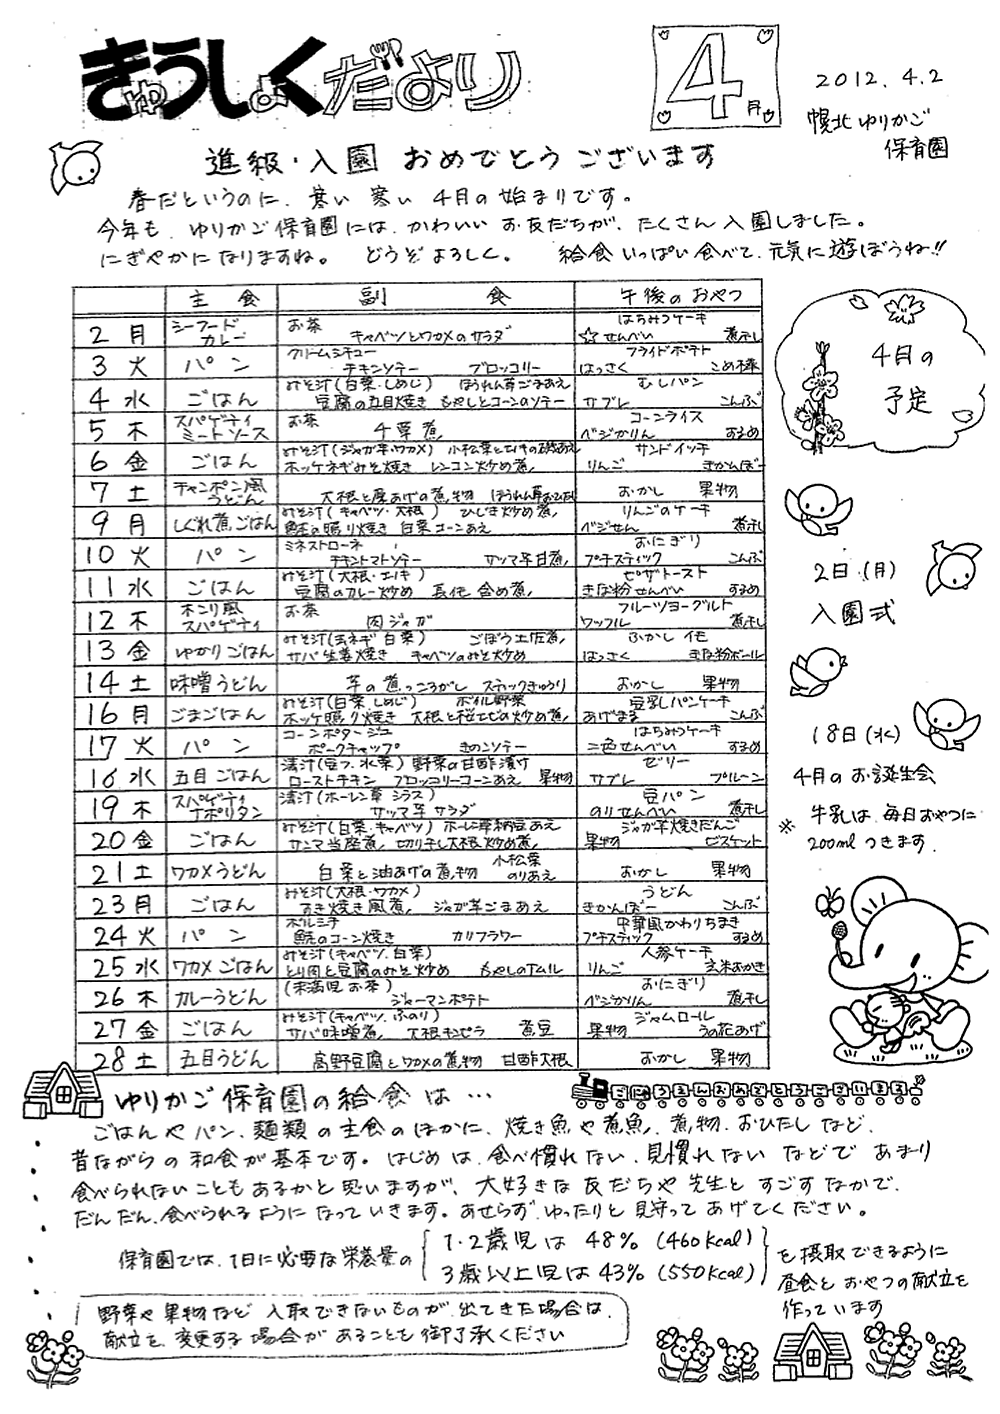 きゅうしょくだより
4月
2012.4.2
幌北ゆりかご
保育園
進級・入園 おめでとうございます
春だというのに、寒い寒い4月の始まりです。
今年も、ゆりかご保育園には、かわいいお友だちが、たくさん入園しました。
にぎやかになりますね。 どうぞよろしく。 給食いっぱい食べて、元気に遊ぼうね!!
主食 副食 午後のおやつ
2 月 シーフードカレー お茶 キャベツとワカメのサラダ はちみつケーキ ☆せんべい 煮干し
3 火 パン クリームシチュー チキンソテー ブロッコリー フライドポテト はっさく こめ棒
4 水 ごはん みそ汁(白菜・しめじ) ほうれん草ごまあえ 豆腐の五目焼き もやしとコーンのソテー むしパン サブレ こんぶ
5 木 スパゲティミートソース お茶 千草煮 コーンライス ベジかりん するめ
6 金 ごはん みそ汁(ジャガ芋・ワカメ) 小松菜とエノキの磯あえ ホッケネギみそ焼き レンコン炒め煮 サンドイッチ りんご きかんぼー
7 土 チャンポン風うどん 大根と厚あげの煮物 ほうれん草おひたし おかし 果物
9 月 しぐれ煮ごはん みそ汁(キャベツ・大根) ひじき炒め煮 鮭の照り焼き 白菜コーンあえ りんごのケーキ ベジせん 煮干し
10 火 パン ミネストローネ チキントマトソテー サツマ芋甘煮 おにぎり プチスティック こんぶ
11 水 ごはん みそ汁(大根・エノキ) 豆腐のカレー炒め 長芋含め煮 ピザトースト きな粉せんべい するめ
12 木 キノコ風スパゲティ お茶 肉ジャガ フルーツヨーグルト ワッフル 煮干し
13 金 ゆかりごはん みそ汁(玉ネギ 白菜) ごぼう土佐煮 サバ生姜焼き キャベツのみそ炒め ふかしイモ はっさく きな粉ボール
14 土 味噌うどん 芋の煮っころがし スティックきゅうり おかし 果物
16 月 ごまごはん みそ汁(白菜 しめじ) ボイル野菜 ホッケ照り焼き 大根と桜エビの炒め煮 豆乳パンケーキ あげまる こんぶ
17 火 パン コーンポタージュ ポークチャップ きのこソテー はちみつケーキ 二色せんべい するめ
18 水 五目ごはん 清汁(豆フ、水菜) 野菜の甘酢漬け ローストチキン ブロッコリーコーンあえ 果物 ゼリー サブレ プルーン
19 木 スパゲティナポリタン 清汁(ホーレン草 シラス) サツマ芋サラダ 豆パン のりせんべい 煮干し
20 金 ごはん みそ汁(白菜・キャベツ) ホーレン草納豆あえ サンマ当座煮 切り干し大根炒め煮 ジャガ芋焼きだんご 果物 ビスケット
21 土 ワカメうどん 白菜と油あげの煮物 小松菜のりあえ おかし 果物
23 月 ごはん みそ汁(大根・ワカメ) すき焼き風煮 ジャガ芋ごまあえ うどん きかんぼー こんぶ
24 火 パン ボルシチ 鮭のコーン焼き カリフラワー 中華風かわりちまき プチスティック するめ
25 水 ワカメごはん みそ汁(キャベツ、白菜) とり肉と豆腐のみそ炒め もやしのナムル 人参ケーキ りんご 玄米おかき
26 木 カレーうどん (未満児 お茶) ジャーマンポテト おにぎり ベジかりん 煮干し
27 金 ごはん みそ汁(キャベツ、ふのり) サバ味噌煮 大根キンピラ 煮豆 ジャムロール 果物 うの花あげ
28 土 五目うどん 高野豆腐とワカメの煮物 甘酢大根 おかし 果物
4月の
予定
2日(月)
入園式
18日(水)
4月のお誕生会
※ 牛乳は、毎日おやつに
200mlつきます。
ゆりかご保育園の給食は…
ごはんやパン、麺類の主食のほかに、焼き魚や煮魚、煮物、おひたしなど、
昔ながらの和食が基本です。はじめは、食べ慣れない、見慣れないなどであまり
食べられないこともあるかと思いますが、大好きな友だちや先生とすごすなかで、
だんだん、食べられるようになっていきます。あせらず、ゆったりと見守ってあげてください。
保育園では、1日に必要な栄養量の
1・2歳児は 48%(460kcal)
3歳以上児は 43%(550kcal)
を摂取できるように
昼食とおやつの献立を
作っています
野菜や果物など入取できないものが出てきた場合は、
献立を変更する場合があることを御了承ください